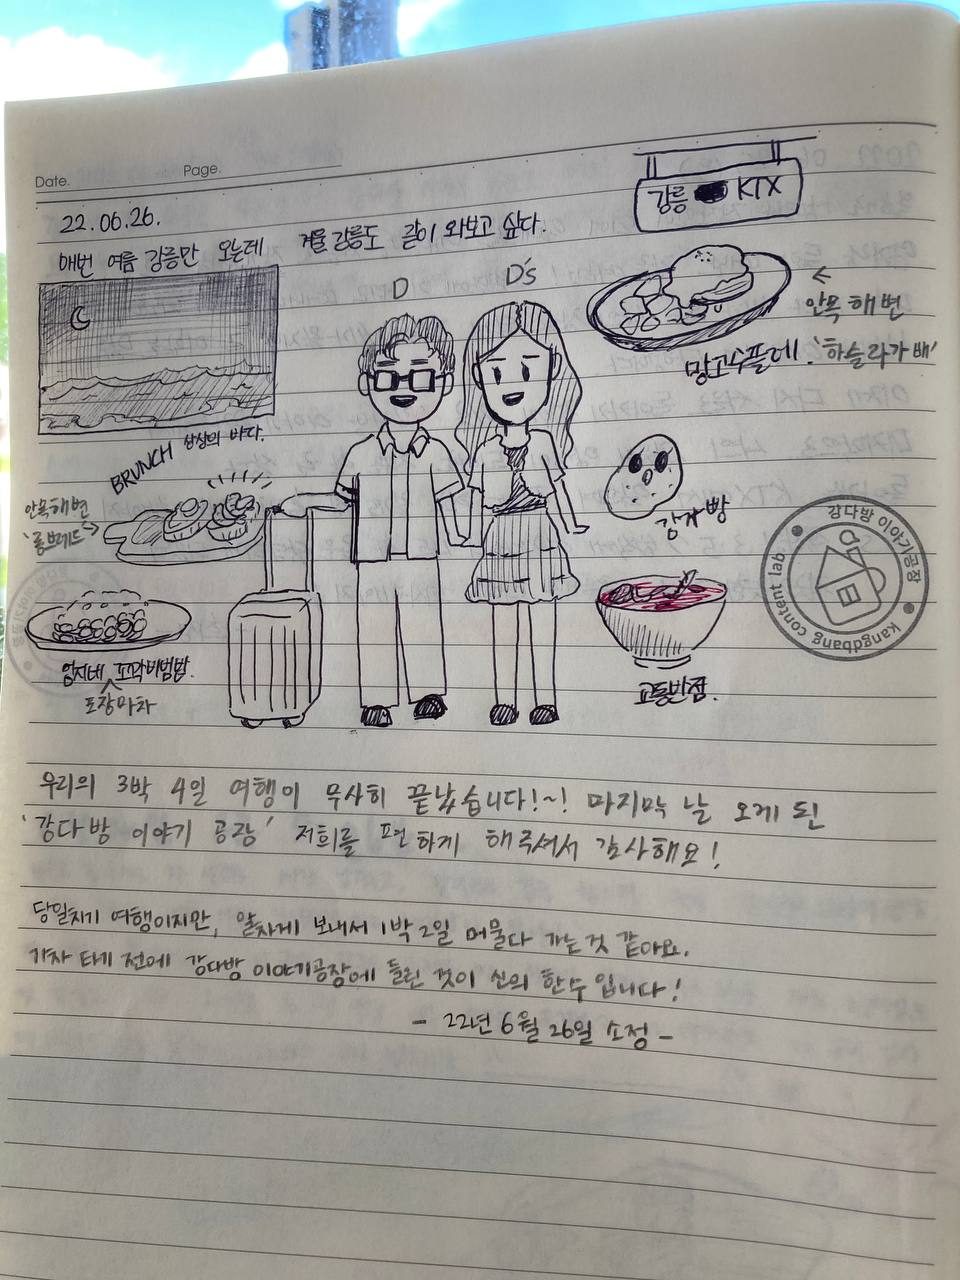 Date.
Page.
22.06.26.
매번 여름 강릉만 오는데 겨울 강릉도 같이 와보고 싶다.
강릉 KTX
D
D's
←
안목해변
망고수플레 '하슬라가배'
상상의 바다.
BRUNCH
안목해변
'롱브레드' →
감자빵
강다방 이야기공장
kangdbang content lab
엄지네 꼬막비빔밥.
포장마차
교동반점.
우리의 3박 4일 여행이 무사히 끝났습니다!~! 마지막 날 오게 된
'강다방 이야기 공장' 저희를 편하게 해주셔서 감사해요!
당일치기 여행이지만, 알차게 보내서 1박 2일 머물다 가는 것 같아요.
기차 타기 전에 강다방 이야기공장에 들린 것이 신의 한수 입니다!
- 22년 6월 26일 소정 -